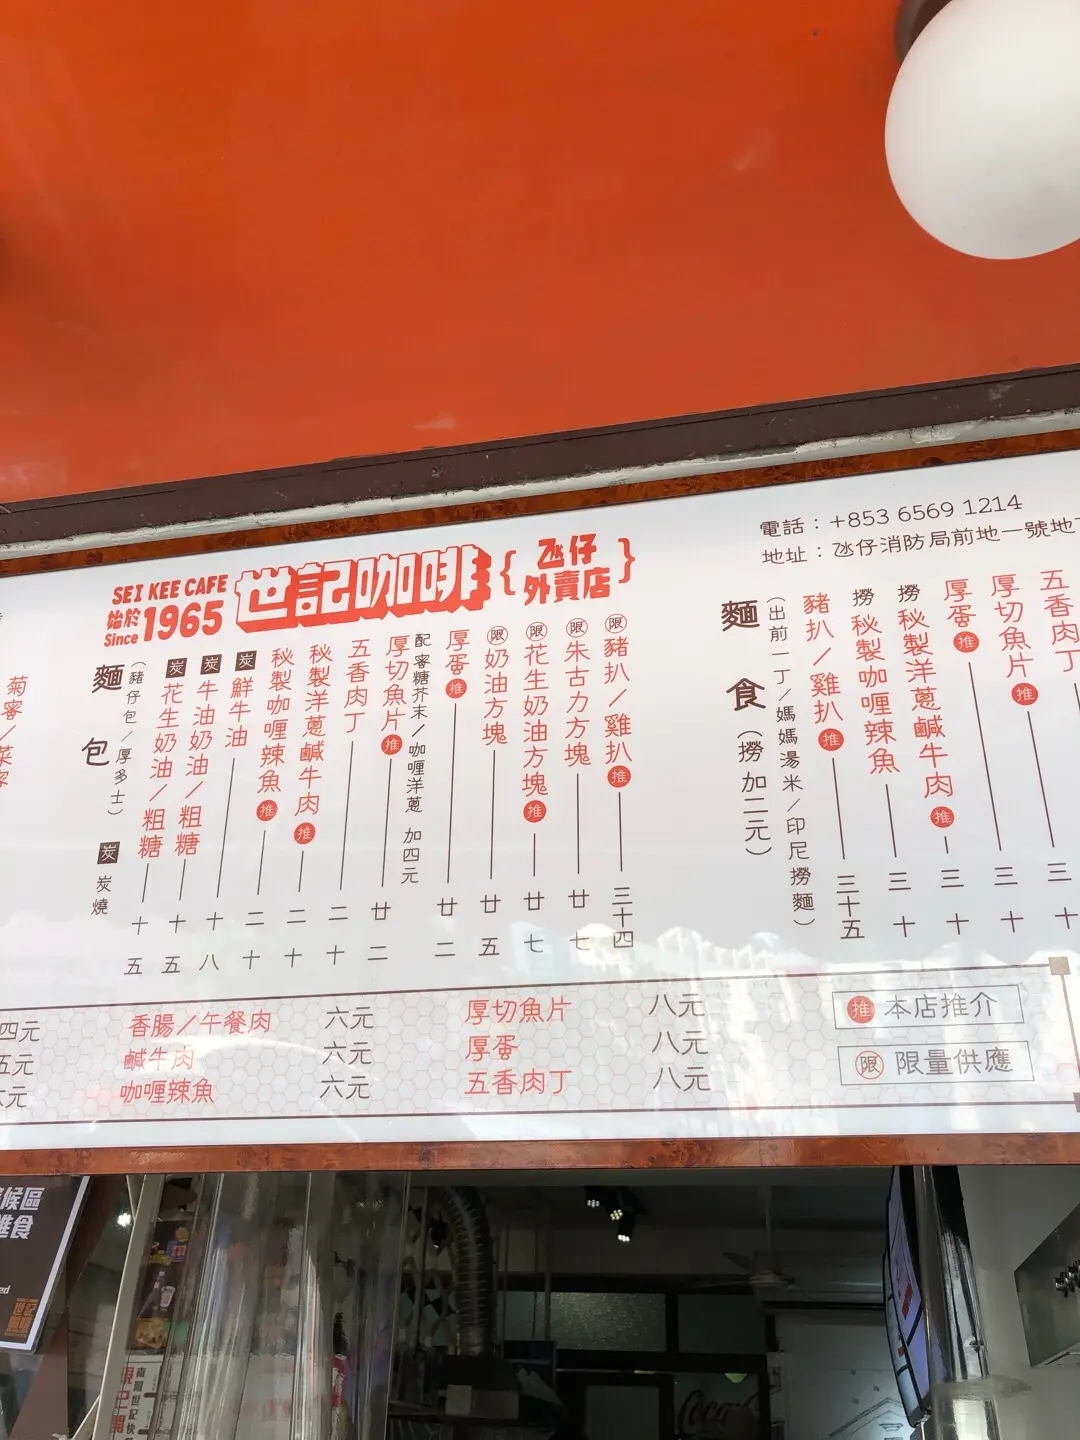 電話：+853 6569 1214
SEI KEE CAFE
始於
Since
1965
世記咖啡
{氹仔
外賣店}
麵包
(豬仔包／厚多士)
炭 炭燒
炭 花生奶油／粗糖 十五
炭 牛油奶油／粗糖 十五
炭 鮮牛油 十八
秘製咖喱辣魚 推 二十
秘製洋蔥鹹牛肉 推 二十
五香肉丁 二十
厚切魚片 推 廿二
配蜜糖芥末／咖喱洋蔥 加四元
厚蛋 推 廿二
限 奶油方塊 廿五
限 花生奶油方塊 推 廿七
限 朱古力方塊 廿七
限 豬扒／雞扒 推 三十四
麵食(撈加二元)
(出前一丁／媽媽湯米／印尼撈麵)
豬扒／雞扒 推 三十五
撈 秘製咖喱辣魚 三十
撈 秘製洋蔥鹹牛肉 推 三十
厚蛋 推 三十
厚切魚片 推 三十
五香肉丁 三十
地址：氹仔消防局前地一號地
四元
五元
香腸／午餐肉 六元
鹹牛肉 六元
咖喱辣魚 六元
厚切魚片 八元
厚蛋 八元
五香肉丁 八元
推 本店推介
限 限量供應
候區
進食
世記